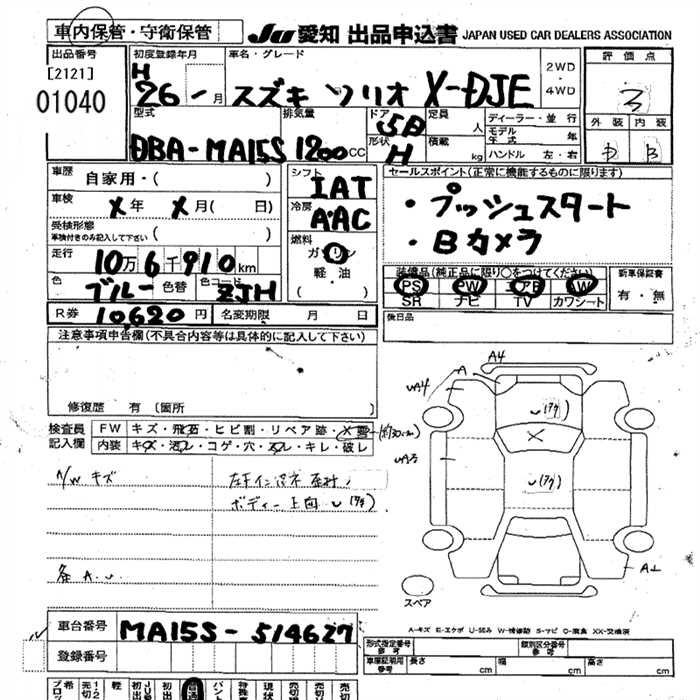 車内保管・守衛保管 JU愛知 出品申込書 JAPAN USED CAR DEALERS ASSOCIATION
出品番号 初度登録年月 車名・グレード 2WD・4WD 評価点
[2121] H
01040 26 - 月 スズキ ソリオ X-DJE 3
型式 排気量 ドア 定員 ディーラー・並行 外装 内装
DBA-MA15S 1200cc 5D 人 モデル年式 年 D B
形状 H 積載 kg ハンドル 左・右
車歴 自家用・( ) シフト IAT セールスポイント(正常に機能するものに限ります)
車検 X年 X月( 日) 冷房 AAC ・プッシュスタート
受検形態 ・Bカメラ
車検付きのみ記入して下さい ( ) 燃料 ガソリン
走行 10万6千910km 軽・油 装備品(純正品に限り○をつけてください) 新車保証書
色 ブルー 色替 色コード ZJH ( ) PS PW エアB AW 有・無
SR ナビ TV カワシート
R券 10620円 名変期限 月 日 後日品
注意事項申告欄(不具合内容等は具体的に記入して下さい)
修復歴 有 〔箇所 〕
検査員 FW キズ・飛石・ヒビ割・リペア跡・X要 (約30cm)
記入欄 内装 キズ・汚レ・コゲ・穴・スレ・キレ・破レ
A4
A
UA4
U(アク)
X
UA3
U(アク)
A/W キズ
ボディー上面 U(アク)
各 A.U
A1
スペア
A-キズ E-エクボ U-凹み W-補修跡 S-サビ C-腐食 XX-交換済
車台番号 MA15S-514627 形式指定番号 参考 類別区分番号 参考
登録番号 車庫証明用 参考 長さ cm 幅 cm 高さ cm